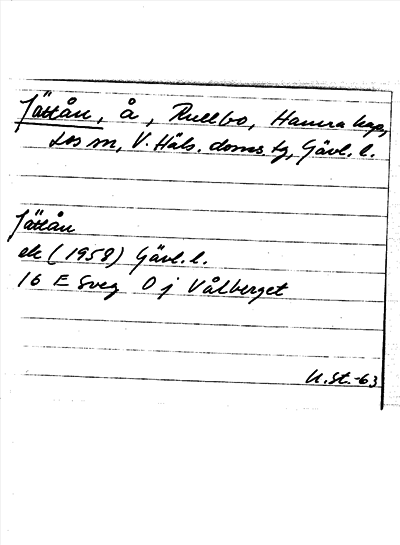 Jättån, å, Rullbo, Hamra kap,
Los sn, V. Häls. doms. tg, Gävl. l.
Jättån
ek (1958) Gävl. l.
16 E Sveg 0 j Vålberget
U. St. -63